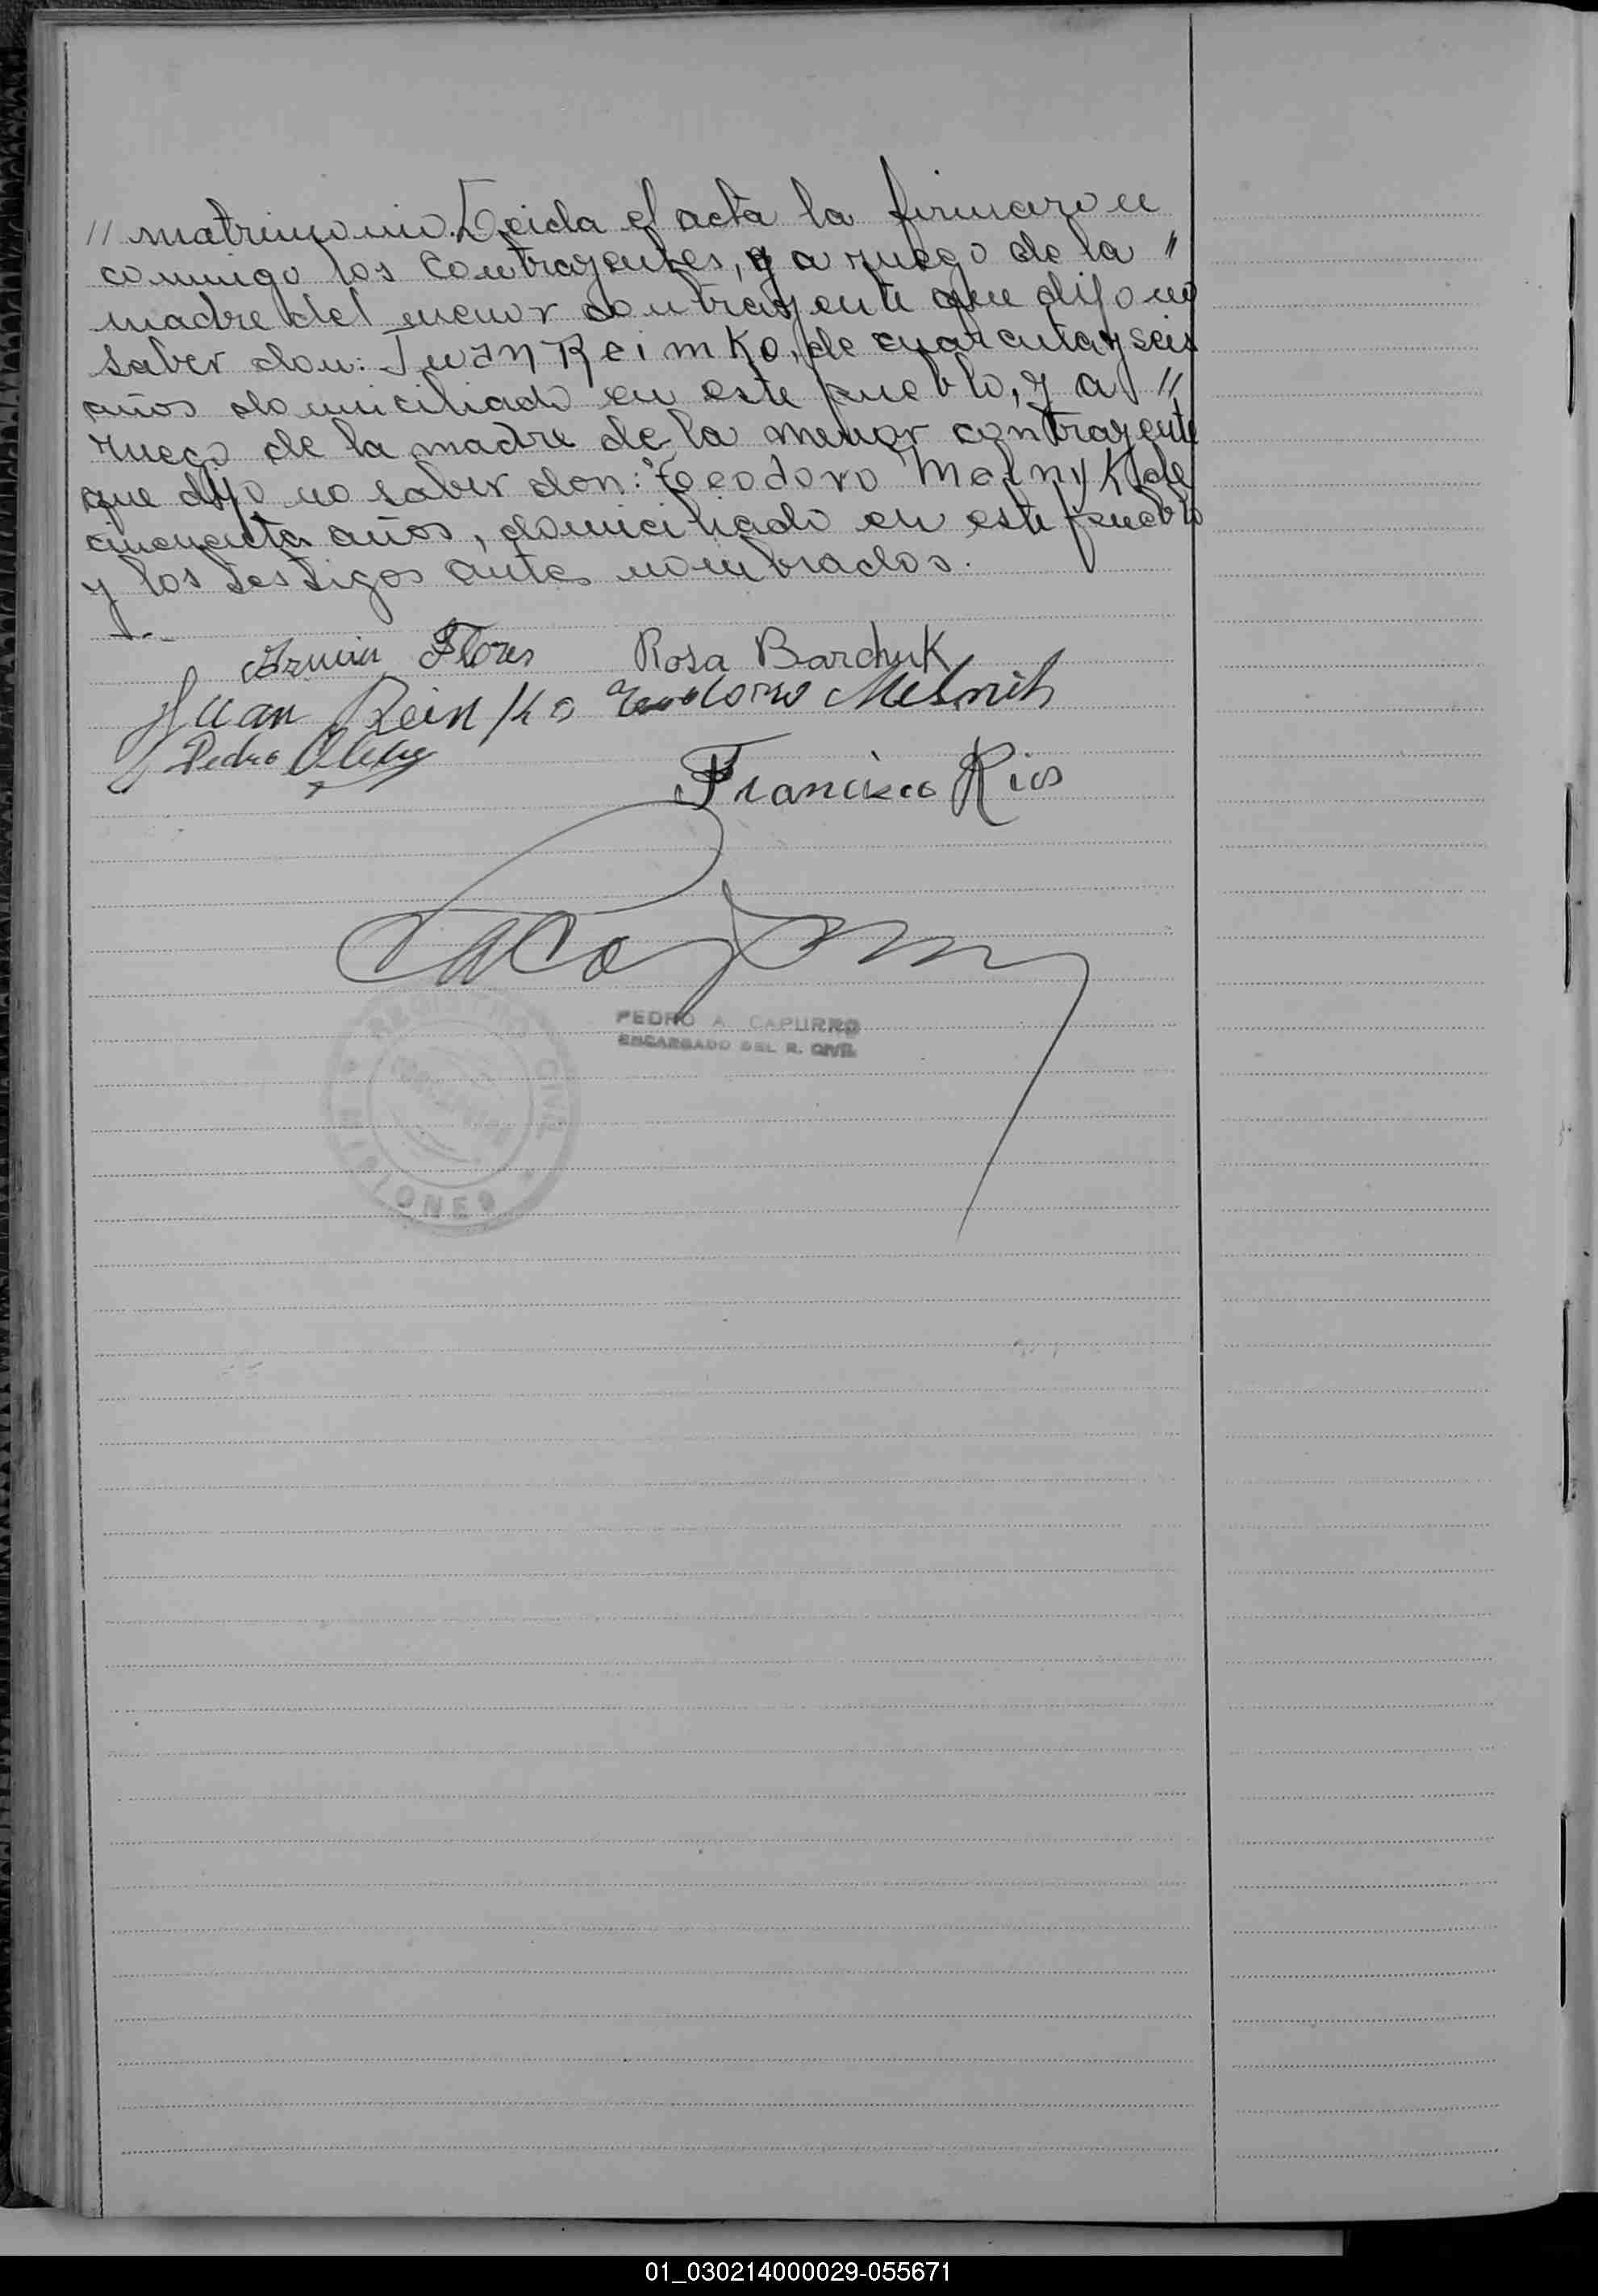 // matrimonio. Leida el acta la firmaron
conmigo los contrayentes, y a ruego de la "
madre del menor contrayente que dijo no
saber don: Iwan Reimko, de cuarenta y seis
años domiciliado en este pueblo, y a "
ruego de la madre de la menor contrayente
que dijo no saber don: Teodoro Melnyk de
cincuenta años, domiciliado en este pueblo
y los testigos antes nombrados.
Flores Rosa Barchuk
Juan Reinko Teodoro Melnich
Pedro
Francisco Rios
PEDRO A. CAPURRO
ENCARGADO DEL R. CIVIL
REGISTRO CIVIL
MISIONES
01_030214000029-055671